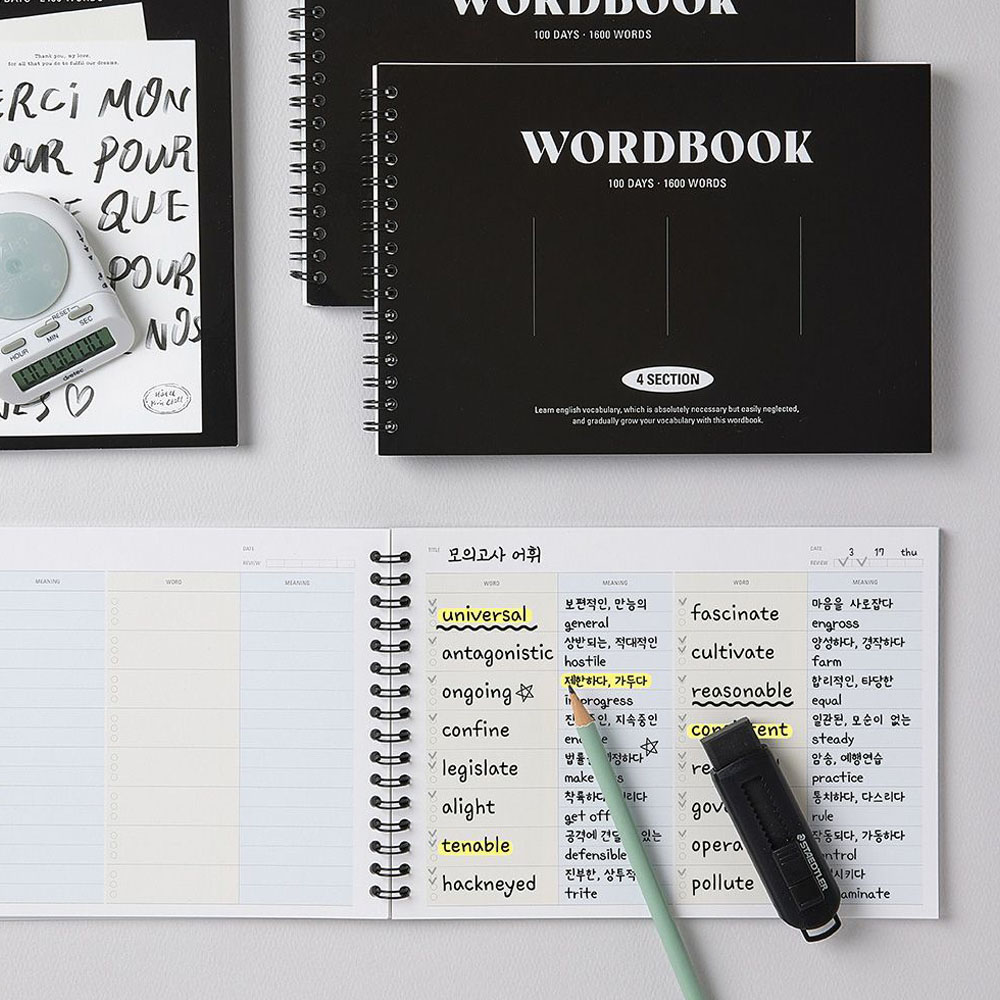 Thank you, my love,
for all that you do to fulfil our dreams.
MON
POUR
QUE
POUR
NOS
RESET
HOUR MIN SEC
dretec
WORDBOOK
100 DAYS · 1600 WORDS
WORDBOOK
100 DAYS · 1600 WORDS
4 SECTION
Learn english vocabulary, which is absolutely necessary but easily neglected,
and gradually grow your vocabulary with this wordbook.
DATE
REVIEW
MEANING WORD MEANING
TITLE 모의고사 어휘
DATE 3 17 thu
REVIEW
WORD MEANING WORD MEANING
universal 보편적인, 만능의
general
fascinate 마음을 사로잡다
engross
antagonistic 상반되는, 적대적인
hostile
cultivate 양성하다, 경작하다
farm
ongoing 제한하다, 가두다
in progress
reasonable 합리적인, 타당한
equal
confine 지속중인
일관된, 모순이 없는
steady
legislate
make
암송, 예행연습
practice
alight
get off
통치하다, 다스리다
rule
tenable 공격에 있는
defensible
작동되다, 가동하다
hackneyed 진부한,
trite
pollute
STAEDTLER